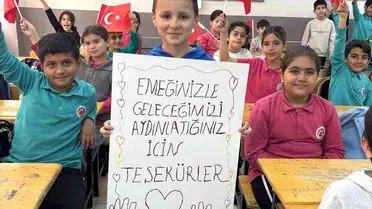 EMEĞİNİZLE
GELECEĞİMİZİ
AYDINLATIĞINIZ
İÇİN
TEŞEKÜRLER